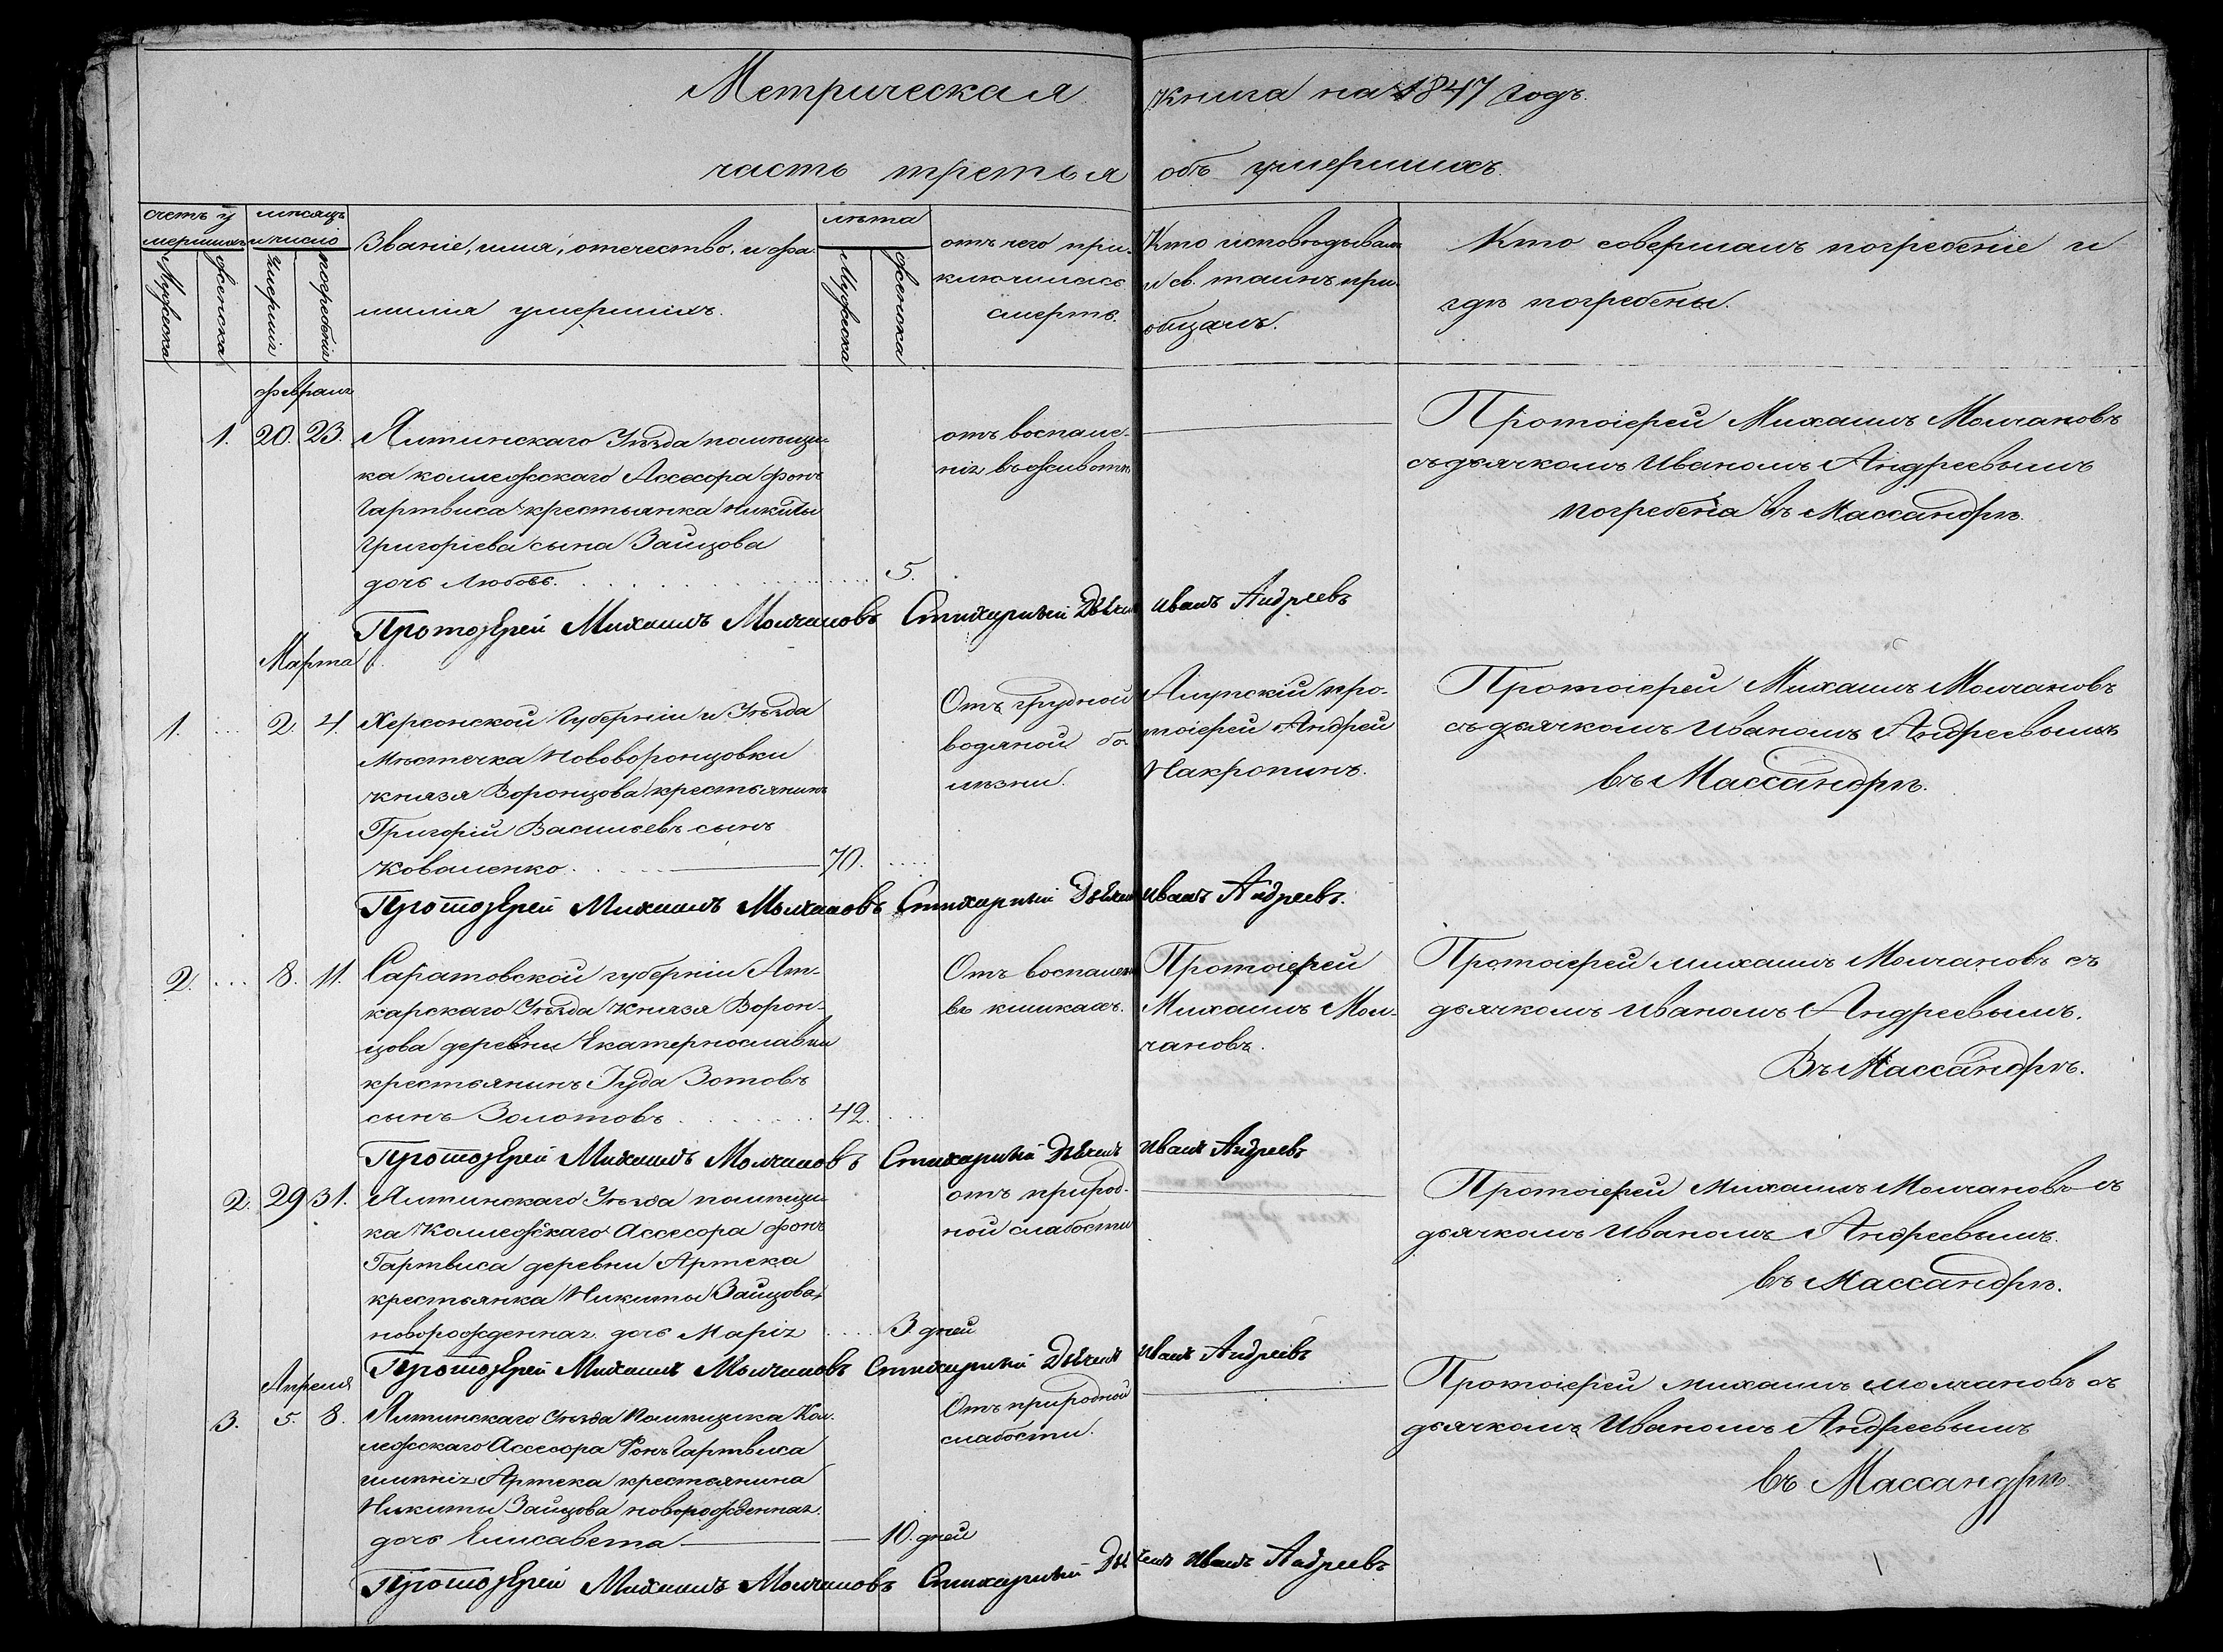 Метрическая книга на 1847 годъ.
часть третья объ умершихъ.
счетъ у
мершихъ
Мужеска
женска
мѣсяцъ
и число
умершiя
погребенiя
Званіе, имя, отечество, и фа
милія умершихъ.
лѣта
Мужеска
женска
отъ чего при-
ключилась
смерть.
Кто исповѣдывалъ
и св. таинъ при-
общалъ.
Кто совершалъ погребеніе и
гдѣ погребены.
февраля
1. 20. 23. Ялтинскаго Уѣзда помѣщи-
ка коллежскаго Ассесора фонъ
Гартвиса крестьянка Никиты
Григорiева сына Заицова
дочь Любовь. 5.
отъ воспале-
нiя въ животѣ
Протоiерей Михаилъ Молчановъ
съ дьячкомъ Иваномъ Андреевымъ
погребена въ Массандрѣ.
Протоiерей Михаилъ Молчановъ Стихарный Дьячекъ Иванъ Андреевъ
Марта
1. 2. 4. Херсонской Губерніи и Уѣзда
Мѣстечка Нововоронцовки
князя Воронцова крестьянинъ
Григорій Васильевъ сынъ
Коваленко. 70.
Отъ грудной
водяной бо-
лѣзни.
Алупскій про-
тоіерей Андрей
Накропинъ.
Протоiерей Михаилъ Молчановъ
съ дьячкомъ Иваномъ Андреевымъ
въ Массандрѣ.
Протоiерей Михаилъ Молчановъ Стихарный Дьячекъ Иванъ Андреевъ.
2. 8. 11. Саратовской губерніи Ат-
карскаго Уѣзда Князя Ворон-
цова деревни Екатернославки
крестьянинъ Іуда Зотовъ
сынъ Золотовъ 42.
Отъ воспаленія
въ кишкахъ.
Протоiерей
Михаилъ Мол-
чановъ.
Протоiерей Михаилъ Молчановъ съ
дьячкомъ Иваномъ Андреевымъ.
Въ Массандрѣ.
Протоiерей Михаилъ Молчановъ Стихарный Дьячекъ Иванъ Андреевъ
2. 29 31. Ялтинскаго Уѣзда помѣщи-
ка Коллежскаго Ассесора фонъ
Гартвиса деревни Артека
крестьянка Никиты Заицова,
новорожденная дочь Марія 3. дней
отъ природ-
ной слабости
Протоiерей Михаилъ Молчановъ съ
дьячкомъ Иваномъ Андреевымъ.
въ Массандрѣ.
Протоiерей Михаилъ Молчановъ Стихарный Дьячекъ Иванъ Андреевъ
Апреля
3. 5. 8. Ялтинскаго Уѣзда Помѣщика Кол-
лежскаго Ассесора Фонъ Гартвиса
имѣнія Артека крестьянина
Никиты Заицова новорожденная
дочь Елисавета 10. дней
Отъ природной
слабости.
Протоiерей Михаилъ Молчановъ съ
дьячкомъ Иваномъ Андреевымъ
въ Массандрѣ.
Протоiерей Михаилъ Молчановъ Стихарный Дьячекъ Иванъ Андреевъ